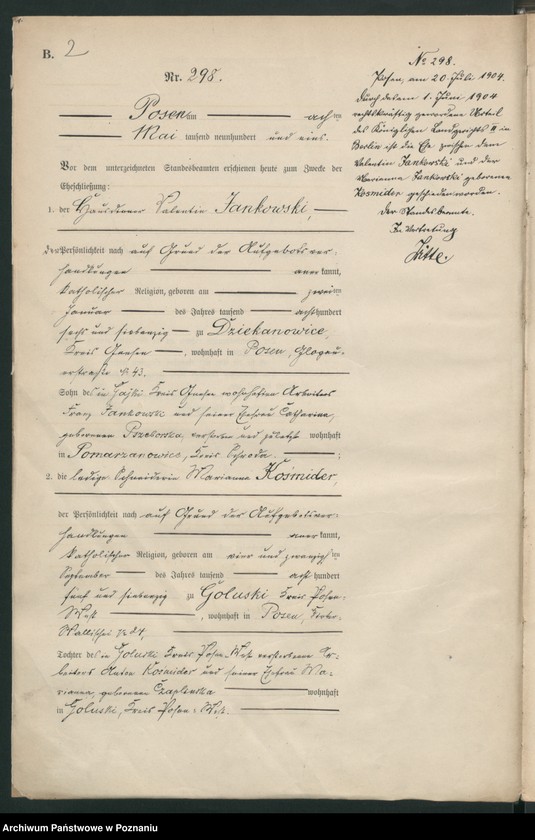 B. 2
Nr. 298.
Posen am acht ten
Mai tausend neunhundert und eins.
Vor dem unterzeichneten Standesbeamten erschienen heute zum Zwecke der
Eheschließung:
1. der Hausdiener Valentin Jankowski,
der Persönlichkeit nach auf Grund der Aufgebotsver-
handlungen anerkannt,
katholischer Religion, geboren am zweiten
Januar des Jahres tausend achthundert
sechs und siebenzig zu Dziekanowice,
Kreis Gnesen, wohnhaft in Posen, Glogau-
erstraße № 43,
Sohn des in Gajki Kreis Gnesen wohnhaften Arbeiters
Franz Jankowski und seiner Ehefrau Catharina,
geborenen verstorben und zuletzt wohnhaft
in Pomarzanowice, Kreis Schroda.
2. die ledige Schneiderin Marianna Kosmider,
der Persönlichkeit nach auf Grund der Aufgebotsver-
handlungen anerkannt,
katholischer Religion, geboren am vier und zwanzigsten
September des Jahres tausend achthundert
fünf und siebenzig zu Goluski Kreis Posen-
West, wohnhaft in Posen,
Wallischei № 24,
Tochter des in Goluski Kreis Posen-West verstorbenen Ar-
beiters Anton Kosmider und seiner Ehefrau Ma-
rianna, geborenen Czaplinska wohnhaft
in Goluski, Kreis Posen-West.
№ 298.
Posen, am 20 Juli 1904.
Durch das am 1. Juni 1904
rechtskräftig gewordene Urteil
des Königlichen Landgerichts II in
Berlin ist die Ehe zwischen dem
Valentin Jankowski und der
Marianna Jankowski geborenen
Kosmider geschieden worden.
Der Standesbeamte.
In Vertretung
Archiwum Państwowe w Poznaniu